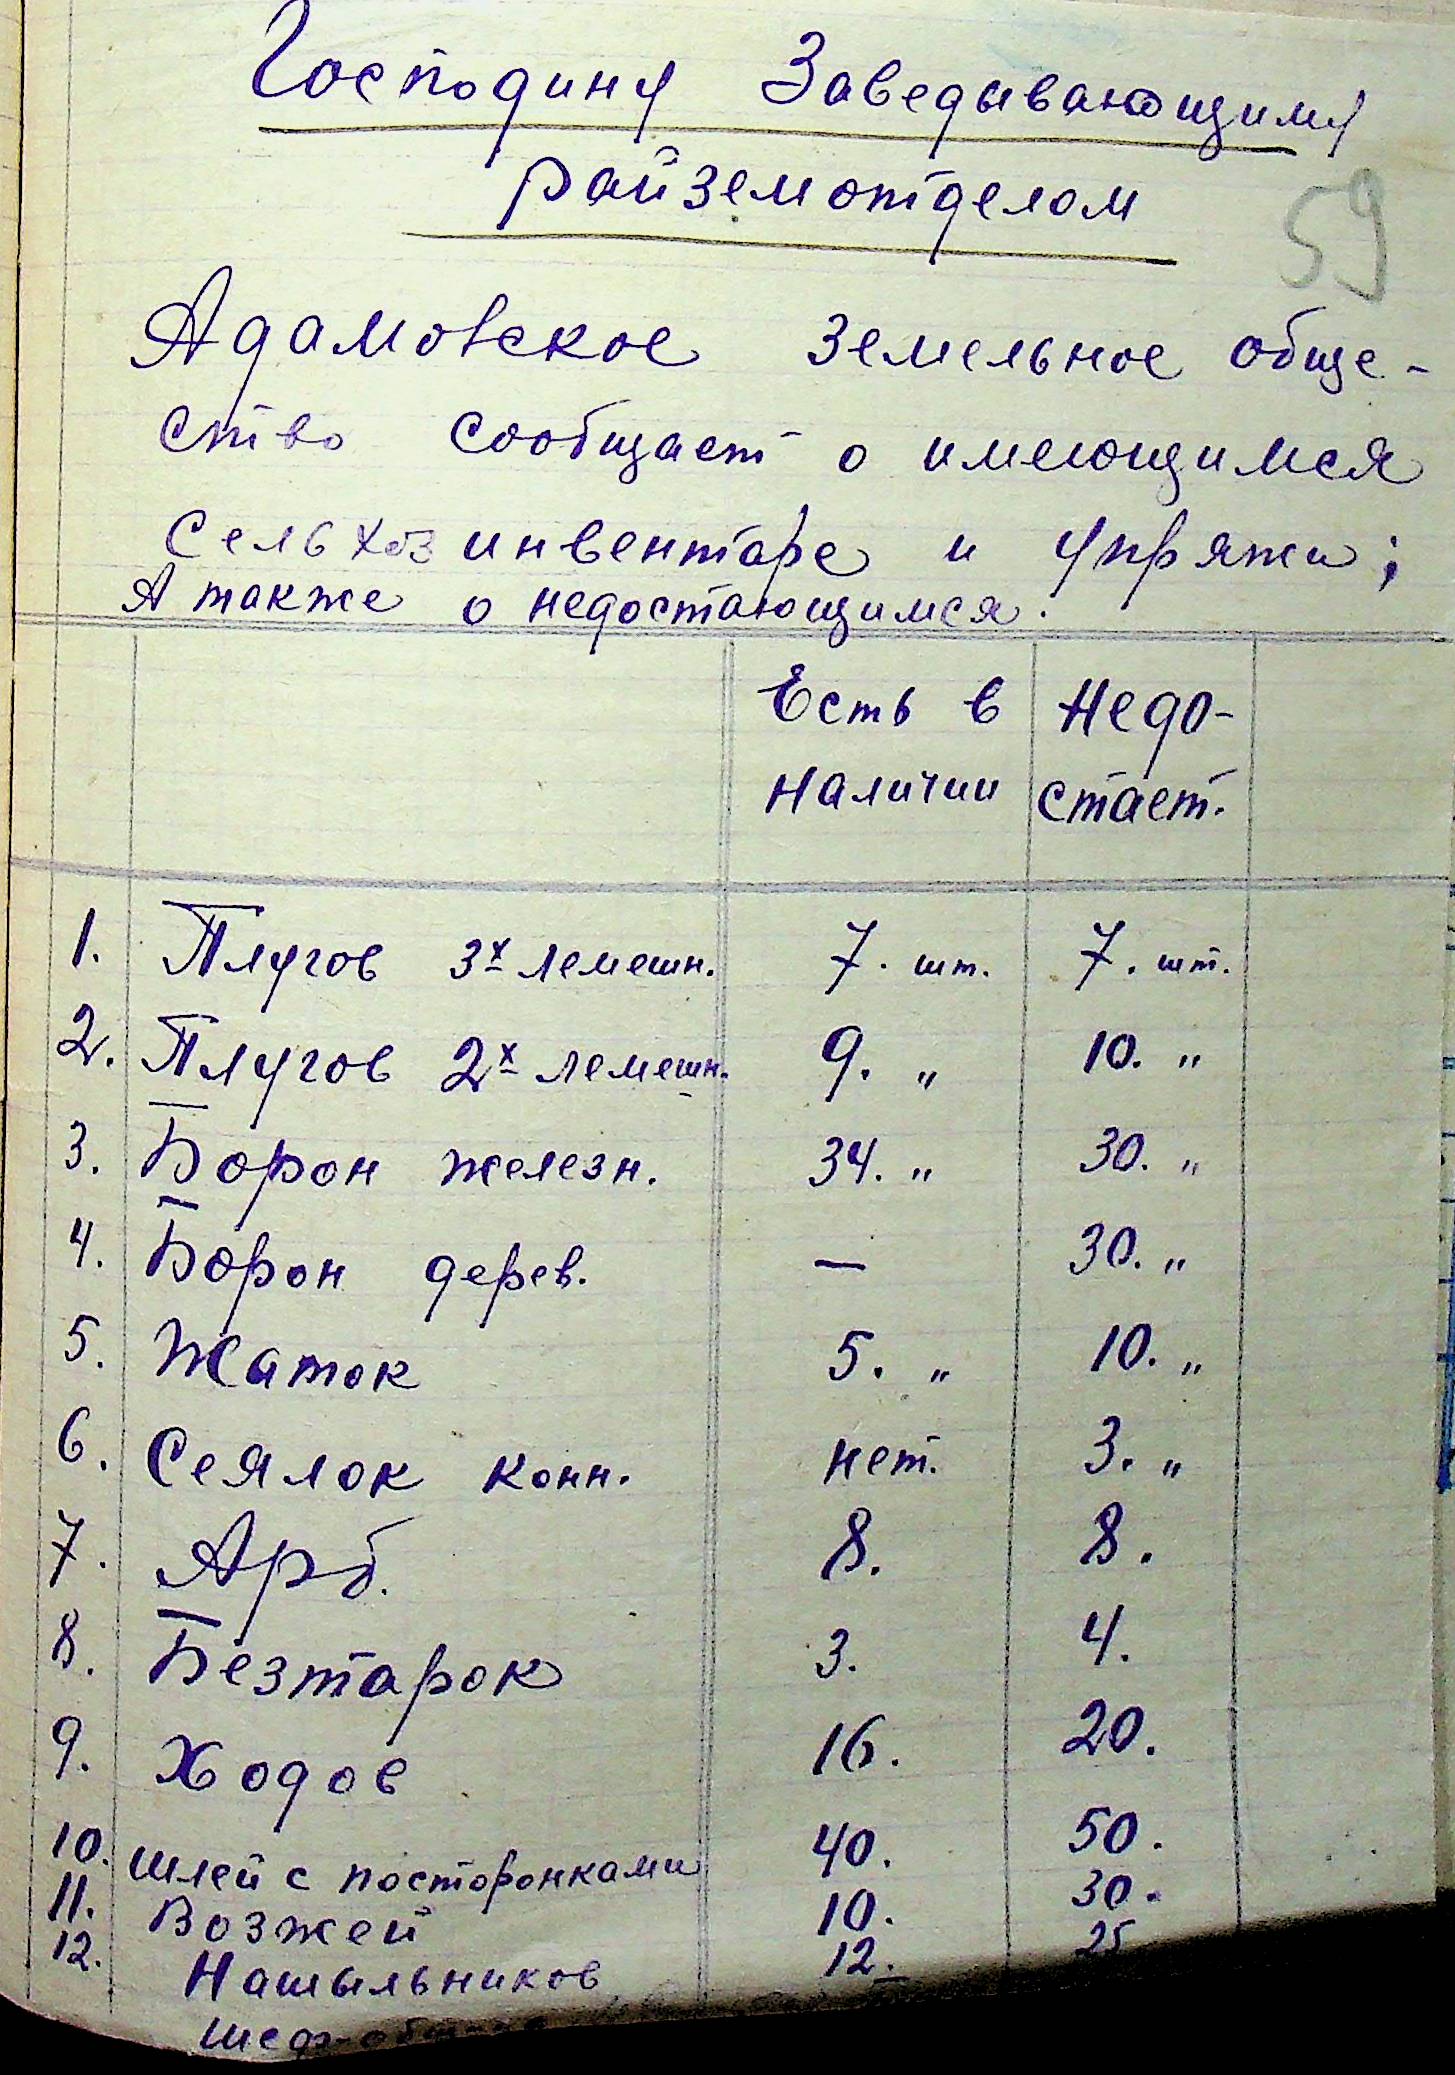 Господину Заведывающиму
райземотделом
59
Адамовское земельное обще-
ство сообщает о имеющимся
сельхозинвентаре и упряжи;
А также о недостающимся.
Есть в Недо-
наличии стает.
1. Плугов 3х лемешн. 7. шт. 7. шт.
2. Плугов 2х лемешн. 9. " 10. "
3. Борон железн. 34. " 30. "
4. Борон дерев. — 30. "
5. Жаток 5. " 10. "
6. Сеялок конн. нет. 3. "
7. Арб. 8. 8.
8. Безтарок 3. 4.
9. Ходов 16. 20.
10. Шлей с посторонками 40. 50.
11. Возжей 10. 30.
12. Нашыльников 12. 25